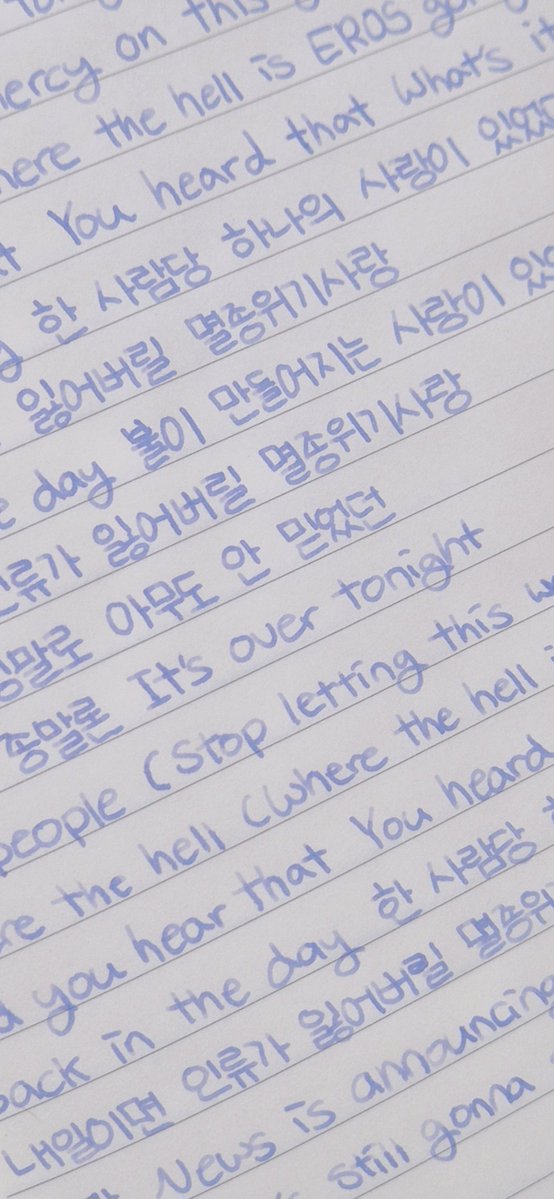 mercy on this
the hell is EROS
You heard that what's it
한 사람당 하나의 사랑이
잃어버릴 멸종위기사랑
day 불이 만들어지는 사랑이
잃어버릴 멸종위기사랑
아무도 안 믿었던
종말론 It's over tonight
people (Stop letting this
the hell (Where the hell
you hear that You heard
back in the day 한 사람당
내일이면 인류가 잃어버릴
News is announcing
still gonna